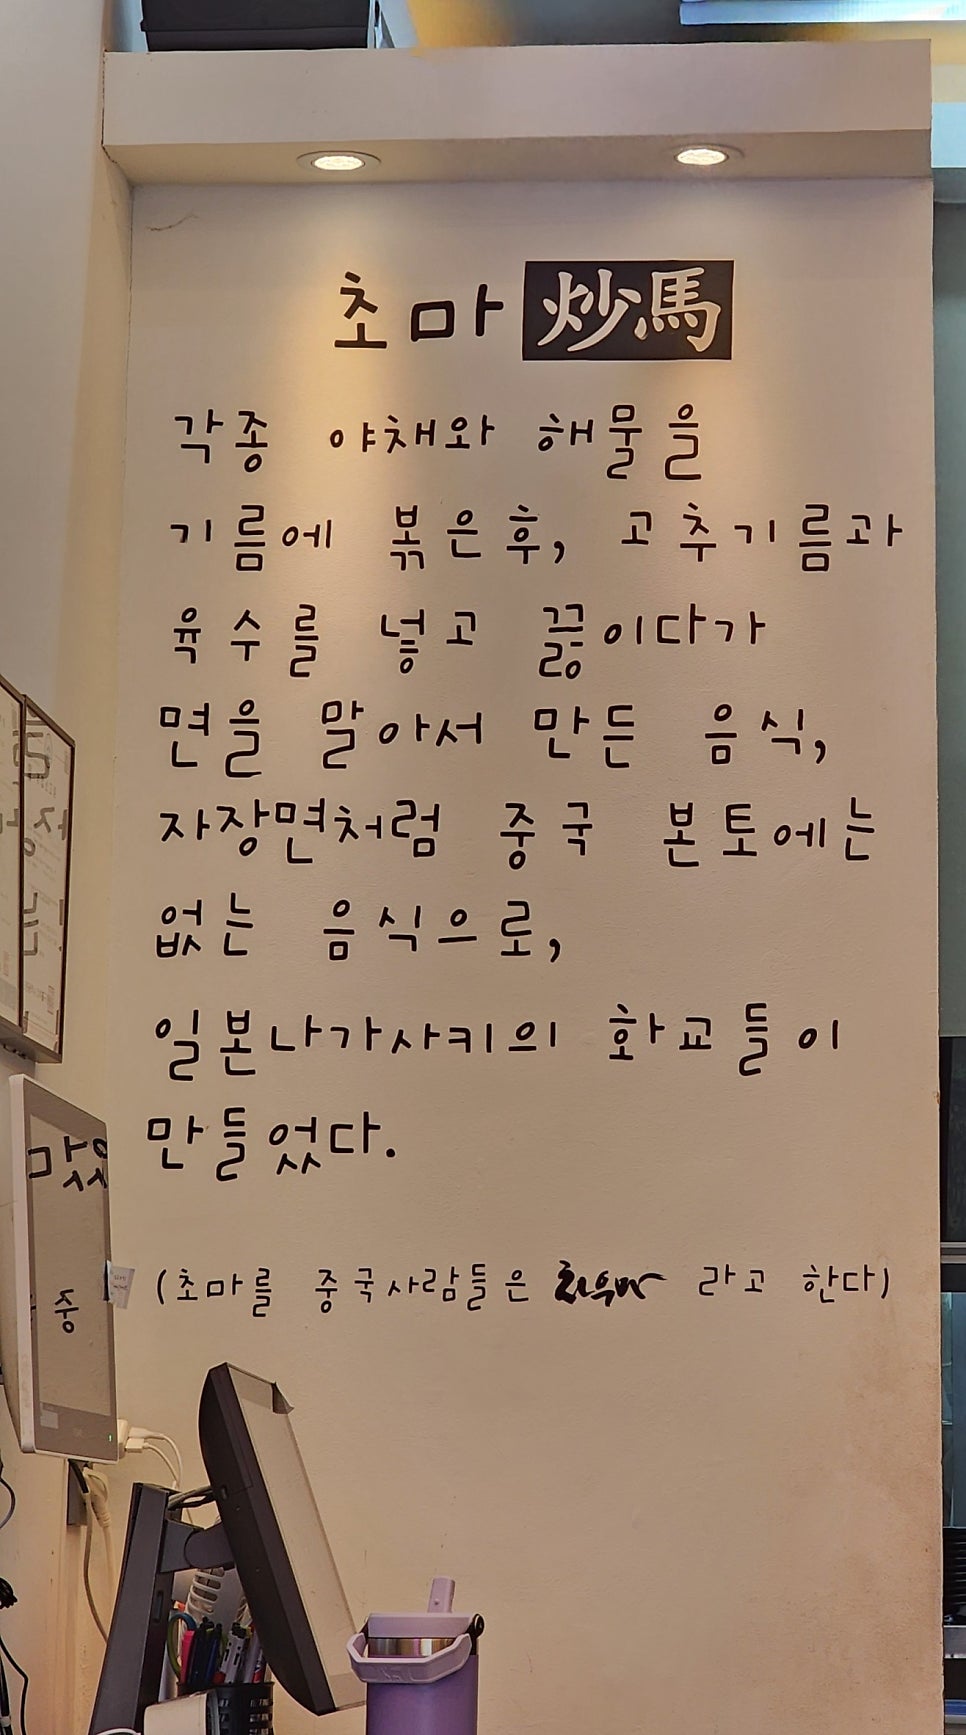 초마 炒馬
각종 야채와 해물을
기름에 볶은후, 고추기름과
육수를 넣고 끓이다가
면을 말아서 만든 음식,
자장면처럼 중국 본토에는
없는 음식으로,
일본나가사키의 화교들이
만들었다.
(초마를 중국사람들은 차우마 라고 한다)